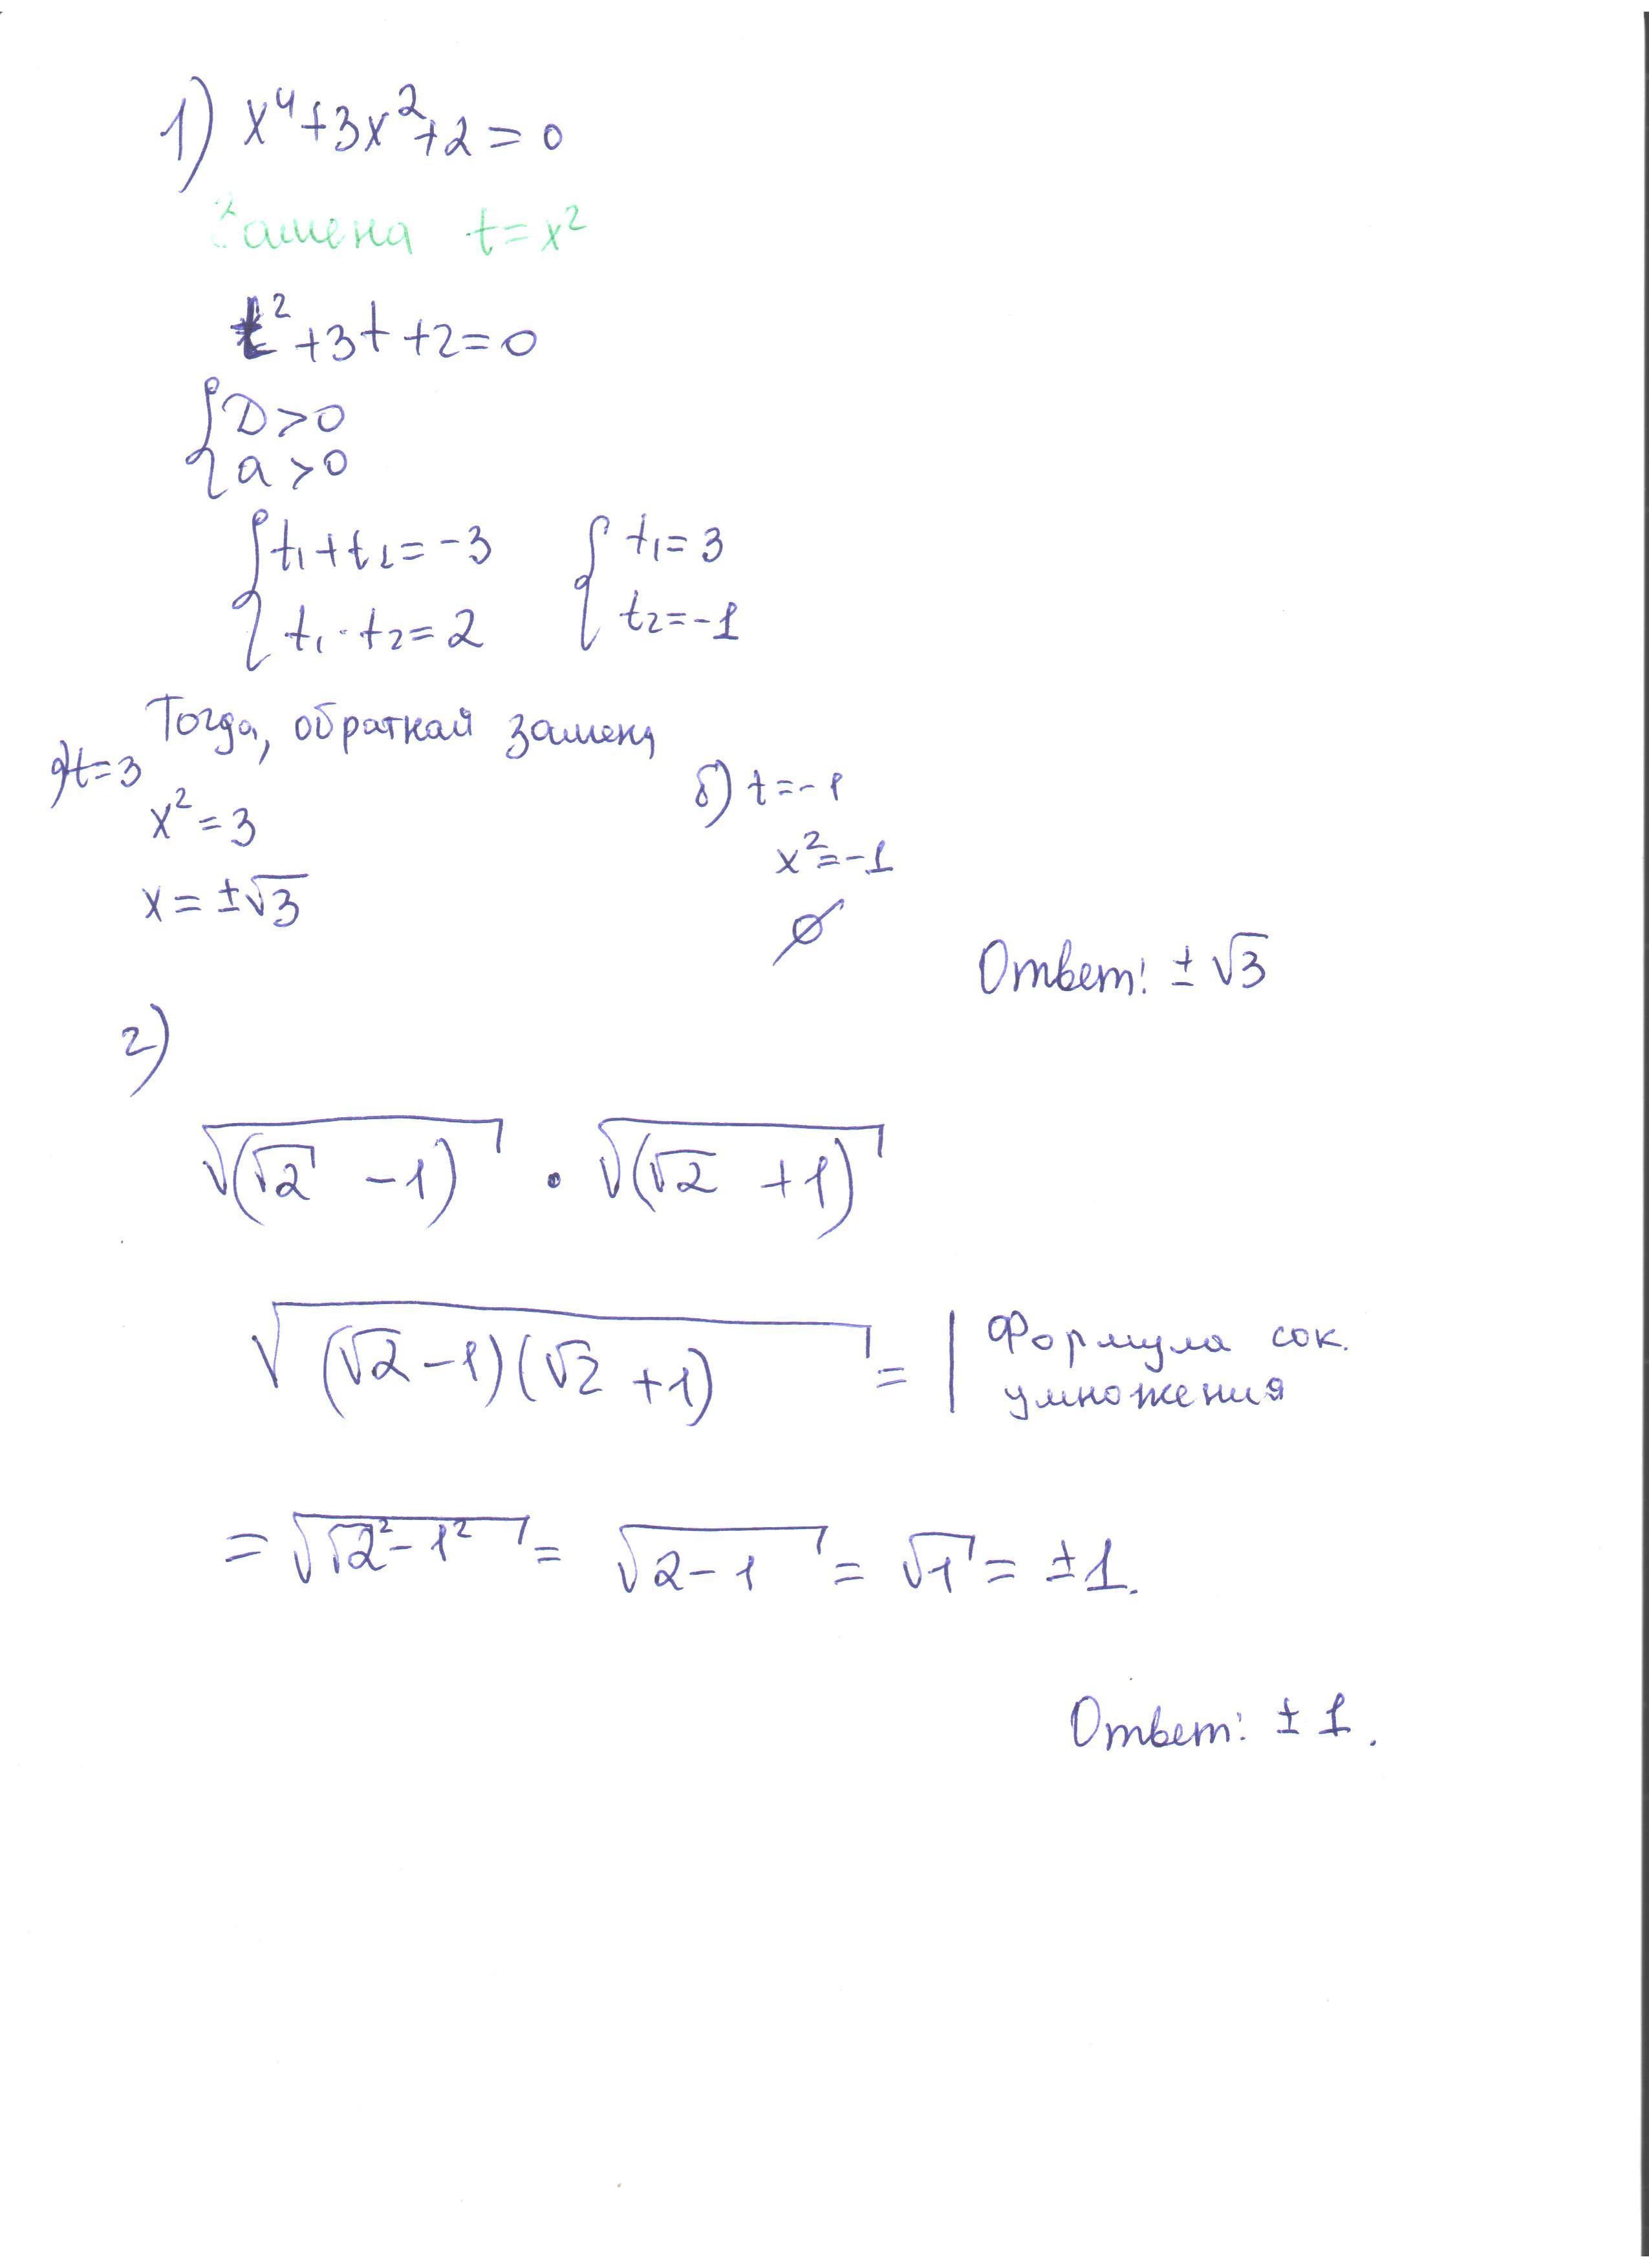 1) x⁴+3x²+2=0
Замена t=x²
t²+3t+2=0
{ D>0
a>0
{ t₁+t₂=-3 { t₁=3
t₁·t₂=2 t₂=-1
Тогда, обратная замена
а) t=3 б) t=-1
x²=3 x²=-1
x=±√3 ∅
Ответ: ±√3
2)
√(√2 -1) · √(√2 +1)
√((√2-1)(√2+1)) = | Формула сок.
умножения
= √(√2²-1²) = √(2-1) = √1 = ±1.
Ответ: ±1.